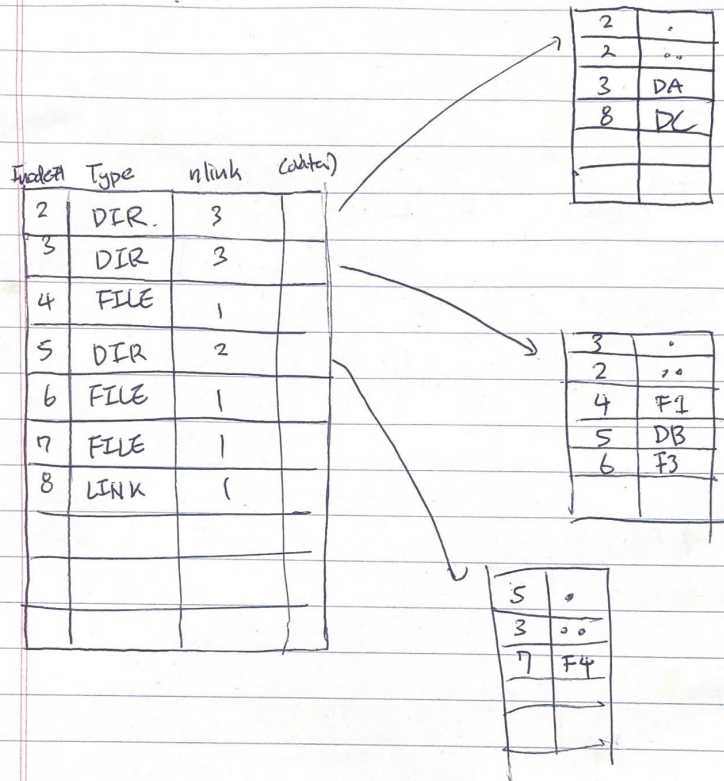 2 .
2 ..
3 DA
8 DC
Inode# Type nlink (data)
2 DIR. 3
3 DIR 3
4 FILE 1
5 DIR 2
6 FILE 1
7 FILE 1
8 LINK 1
3 .
2 ..
4 F1
5 DB
6 F3
5 .
3 ..
7 F4